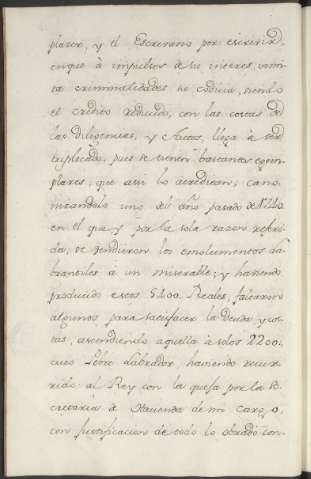 placer, y el Escrivano por escrivir,
enque à impulsos de su interes,
criminalidades su codicia, siendo
el credito reducido, con las costas de
las Diligencias, y Autos, llega à ser
triplicado, pues se tienen bastantes exem-
plares, que asi lo acreditan; cano-
nizandolo uno del año pasado de 1740
en el que y por la sola razon referi-
da, se vendieron los emolumentos la-
brantiles à un miserable; y haviendo
producido estos 5400 Reales, faltaron
algunos para satisfacer la Deuda y cos-
tas, ascendiendo aquella à solos 2200,
cuio Pobre Labrador, haviendo recur-
rido al Rey con la quexa por la Se-
cretaria de Hacienda de mi cargo,
con justificacion de todo lo obrado con-